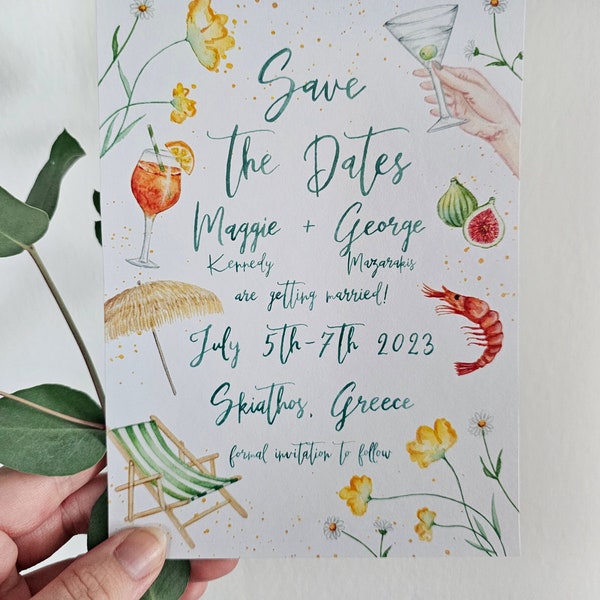 Save
the Dates
Maggie + George
Kennedy Mazarakis
are getting married!
July 5th-7th 2023
Skiathos, Greece
formal invitation to follow